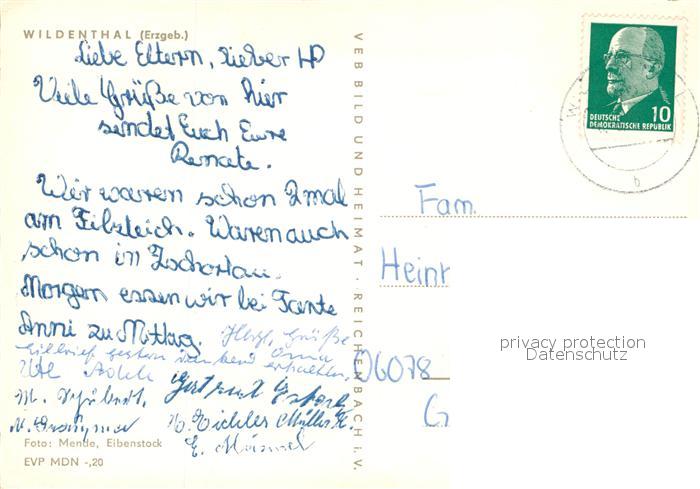 WILDENTHAL (Erzgeb.)
Liebe Eltern, lieber HP
Viele Grüße von hier
sendet Euch Eure
Renate.
Wir waren schon 2 mal
am Filzteich. Waren auch
schon in Zschorlau.
Morgen essen wir bei Tante
Anni zu Mittag. Herzl. Grüße
Eilbrief gestern abend erhalten.
Oma
M. Schubert,
Müller K.
Foto: Mende, Eibenstock
EVP MDN -,20
VEB BILD UND HEIMAT · REICHENBACH i. V.
10
DEUTSCHE
DEMOKRATISCHE REPUBLIK
b
Fam.
Heinr
privacy protection
Datenschutz
06078
G